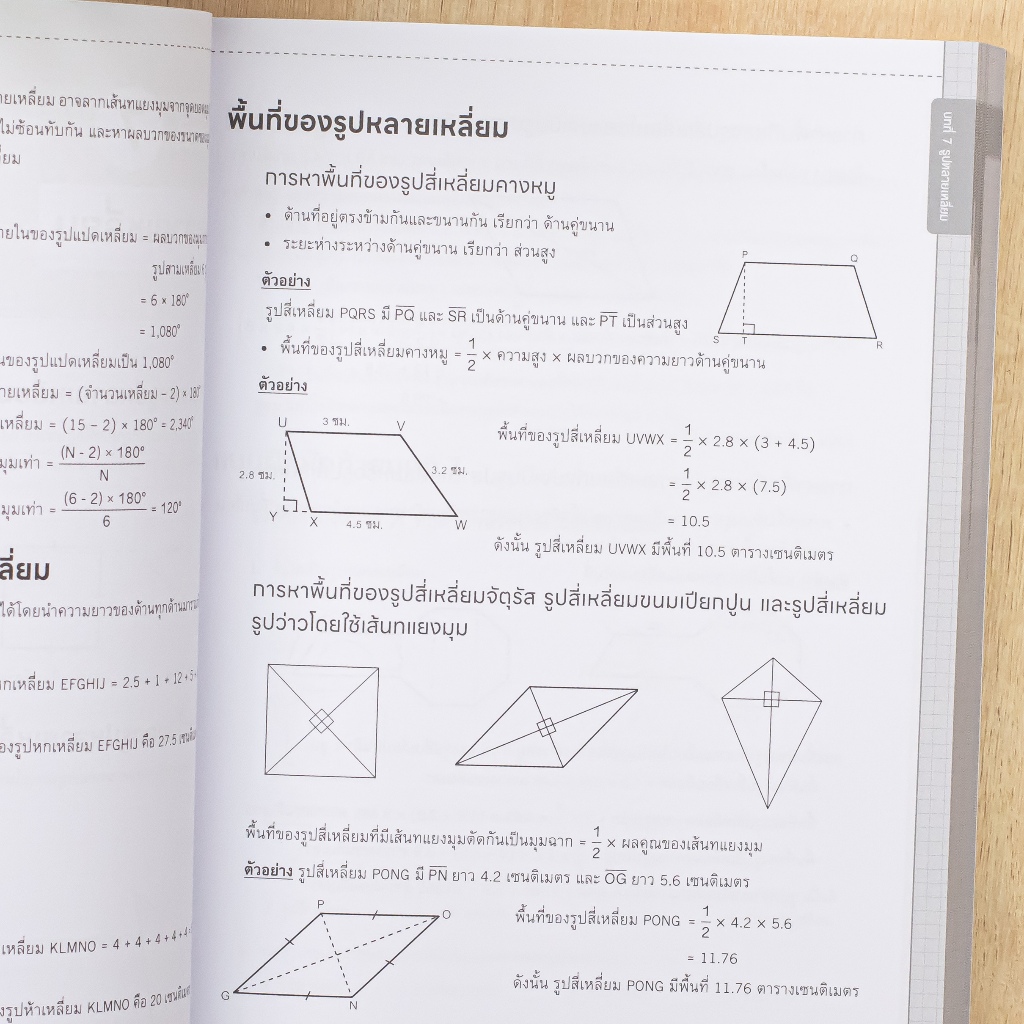 ายเหลี่ยม อาจลากเส้นทแยงมุมจากจุดยอด
ไม่ซ้อนทับกัน และหาผลบวกของขนาดของ
ยม
ายในของรูปแปดเหลี่ยม = ผลบวกของมุม
รูปสามเหลี่ยม 6
= 6 × 180°
= 1,080°
นของรูปแปดเหลี่ยมเป็น 1,080°
ายเหลี่ยม = (จำนวนเหลี่ยม – 2) × 180°
เหลี่ยม = (15 – 2) × 180° = 2,340°
มุมเท่า = (N - 2) × 180° / N
มุมเท่า = (6 - 2) × 180° / 6 = 120°
ลี่ยม
ได้โดยนำความยาวของด้านทุกด้านมารวม
หกเหลี่ยม EFGHIJ = 2.5 + 1 + 12 + 5 +
องรูปหกเหลี่ยม EFGHIJ คือ 27.5 เซนติเม
เหลี่ยม KLMNO = 4 + 4 + 4 + 4 + 4 =
งรูปห้าเหลี่ยม KLMNO คือ 20 เซนติเมต
บทที่ 7 รูปหลายเหลี่ยม
พื้นที่ของรูปหลายเหลี่ยม
การหาพื้นที่ของรูปสี่เหลี่ยมคางหมู
• ด้านที่อยู่ตรงข้ามกันและขนานกัน เรียกว่า ด้านคู่ขนาน
• ระยะห่างระหว่างด้านคู่ขนาน เรียกว่า ส่วนสูง
ตัวอย่าง
รูปสี่เหลี่ยม PQRS มี P̅Q̅ และ S̅R̅ เป็นด้านคู่ขนาน และ P̅T̅ เป็นส่วนสูง
P Q
S T R
• พื้นที่ของรูปสี่เหลี่ยมคางหมู = 1/2 × ความสูง × ผลบวกของความยาวด้านคู่ขนาน
ตัวอย่าง
U 3 ซม. V
2.8 ซม. 3.2 ซม.
Y X 4.5 ซม. W
พื้นที่ของรูปสี่เหลี่ยม UVWX = 1/2 × 2.8 × (3 + 4.5)
= 1/2 × 2.8 × (7.5)
= 10.5
ดังนั้น รูปสี่เหลี่ยม UVWX มีพื้นที่ 10.5 ตารางเซนติเมตร
การหาพื้นที่ของรูปสี่เหลี่ยมจัตุรัส รูปสี่เหลี่ยมขนมเปียกปูน และรูปสี่เหลี่ยม
รูปว่าวโดยใช้เส้นทแยงมุม
พื้นที่ของรูปสี่เหลี่ยมที่มีเส้นทแยงมุมตัดกันเป็นมุมฉาก = 1/2 × ผลคูณของเส้นทแยงมุม
ตัวอย่าง รูปสี่เหลี่ยม PONG มี P̅N̅ ยาว 4.2 เซนติเมตร และ O̅G̅ ยาว 5.6 เซนติเมตร
P O
G N
พื้นที่ของรูปสี่เหลี่ยม PONG = 1/2 × 4.2 × 5.6
= 11.76
ดังนั้น รูปสี่เหลี่ยม PONG มีพื้นที่ 11.76 ตารางเซนติเมตร